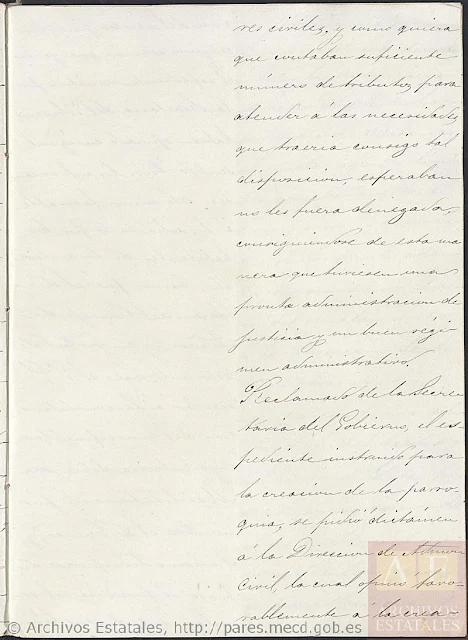 res civiles, y como quiera
que contaban suficiente
número de tributos para
atender á las necesidades
que traeria consigo tal
disposicion, esperaban
no les fuera denegada,
consiguiendose de esta ma
nera que tuviesen una
pronta administracion de
justicia y un buen régi-
men administrativo.
Reclamado de la Secre
taria del Gobierno, el es-
pediente instruido para
la creacion de la parro-
quia, se pidió dictámen
á la Direccion de Admon
Civil, la cual opinó favo-
rablemente á la crea
ARCHIVOS
ESTATALES
© Archivos Estatales, http://pares.mecd.gob.es